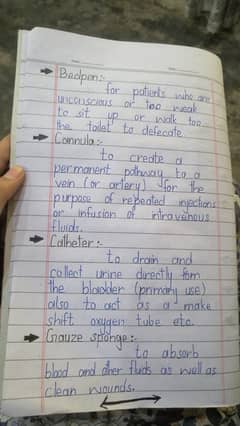 → Bedpan:-
for patients who are
unconscious or too weak
to sit up or walk too
the toilet to defecate.
→ Cannula:-
to create a
permanent pathway to a
vein (or artery) for the
purpose of repeated injections
or infusion of intravenous
fluids.
→ Catheter:-
to drain and
collect urine directly from
the bladder (primary use)
also to act as a make
shift oxygen tube etc.
→ Gauze sponge:-
to absorb
blood and other fluids as well as
clean wounds.